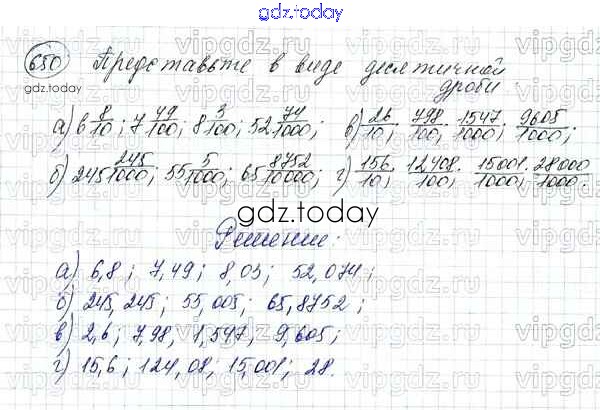 gdz.today
650 Представьте в виде десятичной
дроби
а) 6 8/10; 7 49/100; 8 3/100; 52 74/1000; в) 26/10; 798/100; 1547/1000; 9605/1000;
б) 245 245/1000; 55 5/1000; 65 8752/10000; г) 156/10; 12408/100; 15001/1000; 28000/1000.
gdz.today
Решение:
а) 6,8; 7,49; 8,03; 52,074;
б) 245,245; 55,005; 65,8752;
в) 2,6; 7,98, 1,547; 9,605;
г) 15,6; 124,08; 15,001; 28.
gdz.today